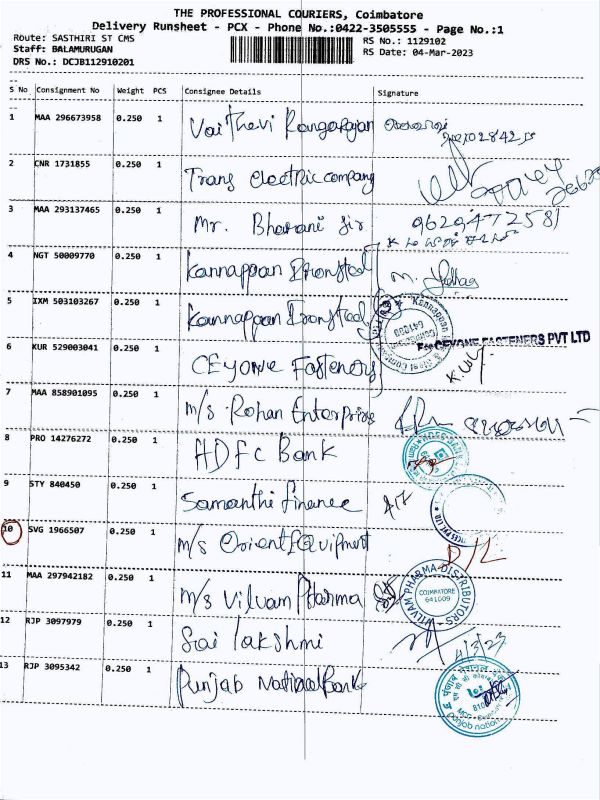 THE PROFESSIONAL COURIERS, Coimbatore
Delivery Runsheet - PCX - Phone No.:0422-3505555 - Page No.:1
Route: SASTHIRI ST CMS
RS No.: 1129102
Staff: BALAMURUGAN
RS Date: 04-Mar-2023
DRS No.: DCJB112910201
S No Consignment No Weight PCS Consignee Details Signature
1 MAA 296673958 0.250 1 Vaithevi Rangarajan
2 CNR 1731855 0.250 1 Trans electric company
3 MAA 293137465 0.250 1 Mr. Bharani Sir 9629472581
4 NGT 50009770 0.250 1 Kannappan Iron steel
5 IXM 503103267 0.250 1 Kannappan Iron steel
641009
For CEYONE FASTENERS PVT LTD
6 KUR 529003041 0.250 1 CEYONE Fasteners
7 MAA 858901095 0.250 1 m/s Rohan Enterprises
8 PRO 14276272 0.250 1 HDFC Bank
9 STY 840450 0.250 1 Samanthi finance
10 SVG 1966507 0.250 1 m/s Orient EQuipment D/L
11 MAA 297942182 0.250 1 m/s Vilvam Pharma
VILVAM PHARMA DISTRIBUTORS
COIMBATORE
641009
12 RJP 3097979 0.250 1 Sai lakshmi 4/3/23
13 RJP 3095342 0.250 1 Punjab National Bank